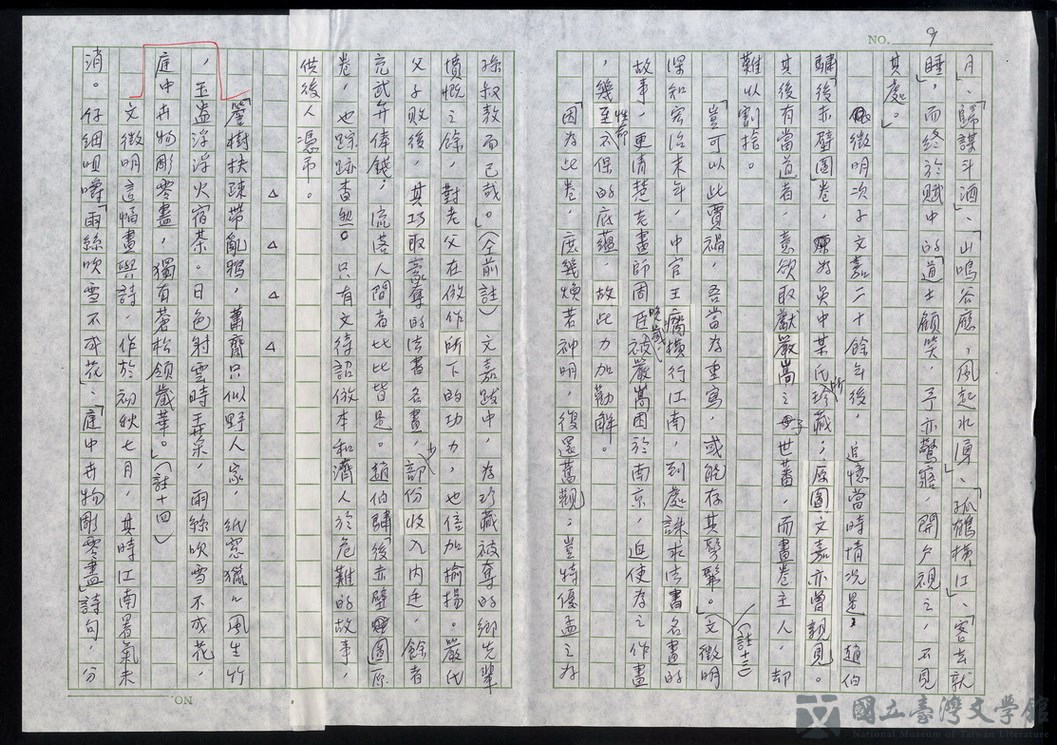 NO. 9
月、「歸謀斗酒」、「山鳴谷應，風起水湧」、「孤鶴橫江」、「客去就
睡」，而終於賦中的「道士顧笑，予亦驚寤，開戶視之，不見
其處」。
徵明次子文嘉二十餘年後，追憶當時情況是，趙伯
驌「後赤壁圖卷，為吳中某氏所珍藏；原圖文嘉亦曾親見。
其後有當道者，意欲取獻嚴嵩之子世蕃，而畫卷主人，却
難以割捨。
「豈可以此賈禍，吾當為重寫，或能存其髣髴。」（註十三）文徵明
深知宏治末年，中官王 橫行江南，到處誅求法書名畫的
故事，更清楚老畫師周臣晚歲，被嚴嵩困於南京，迫使為之作畫
，幾至性命不保的底蘊，故此力加勸解。
「因為此卷，庶幾煥若神明，復還舊觀；豈特優孟之為
孫叔敖而已哉。」（仝前註）文嘉跋中，為珍藏被奪的鄉先輩
憤慨之餘，對老父在倣作所下的功力，也倍加揄揚。嚴氏
父子敗後，其巧取豪奪的法書名畫，少部份收入內廷，餘者
充武弁俸錢，流落人間者比比皆是。趙伯驌「後赤壁圖」原
卷，也踪跡杳然。只有文待詔倣本和濟人於危難的故事，
供後人憑弔。
△ △ △ △
「簷樹扶疎帶亂鴉，蕭齋只似野人家，紙窓獵獵風生竹
，玉盌浮浮火宿茶。日色射雲時弄采，雨絲吹雪不成花，
庭中卉物彫零盡，獨有蒼松領歲華。」（註十四）
文徵明這幅畫與詩，作於初秋七月，其時江南暑氣未
消。仔細咀嚼「雨絲吹雪不成花」、「庭中卉物彫零盡」詩句，分
NO.
國立臺灣文學館
National Museum of Taiwan Literature